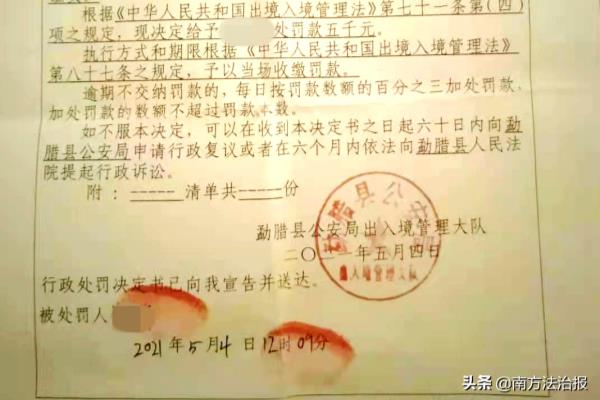 根据《中华人民共和国出境入境管理法》第七十一条第(四)
项之规定,现决定给予 处罚款五千元。
执行方式和期限根据《中华人民共和国出境入境管理法》
第八十七条之规定,予以当场收缴罚款。
逾期不交纳罚款的,每日按罚款数额的百分之三加处罚款,
加处罚款的数额不超过罚款本数。
如不服本决定,可以在收到本决定书之日起六十日内向勐
腊县公安局申请行政复议或者在六个月内依法向勐腊县人民法
院提起行政诉讼。
附:----- 清单共-----份
勐腊县公安局出入境管理大队
二〇二一年五月四日
勐腊县公安局
出入境管理大队
行政处罚决定书已向我宣告并送达。
被处罚人
2021年5月4日12时09分
头条 @南方法治报